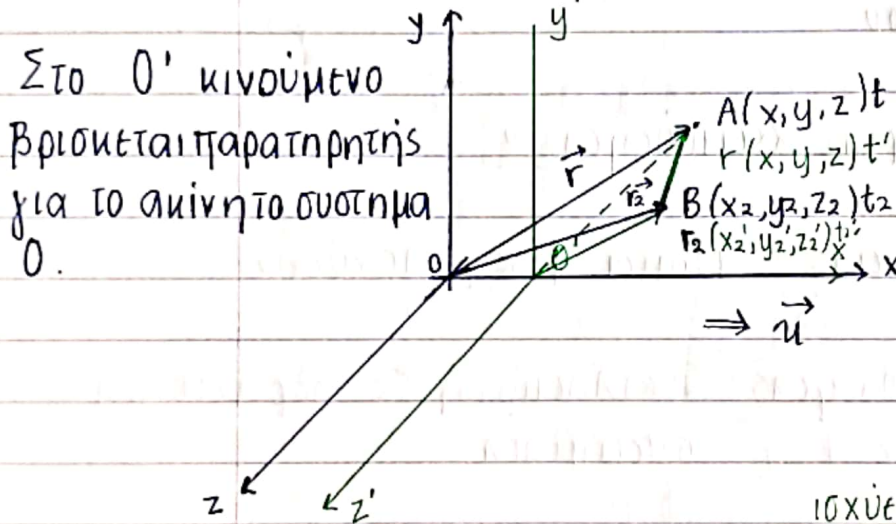 Στο Ο' κινούμενο
βρισκεται παρατηρητής
για το ακίνητο συστημα
Ο.
y
y'
A(x,y,z)t
r'(x,y,z)t'
r⃗
r₂⃗
B(x₂,y₂,z₂)t₂
r₂(x₂',y₂',z₂')t₂'
O
O'
x'
x
⇒ u⃗
z
z'
ισχύε